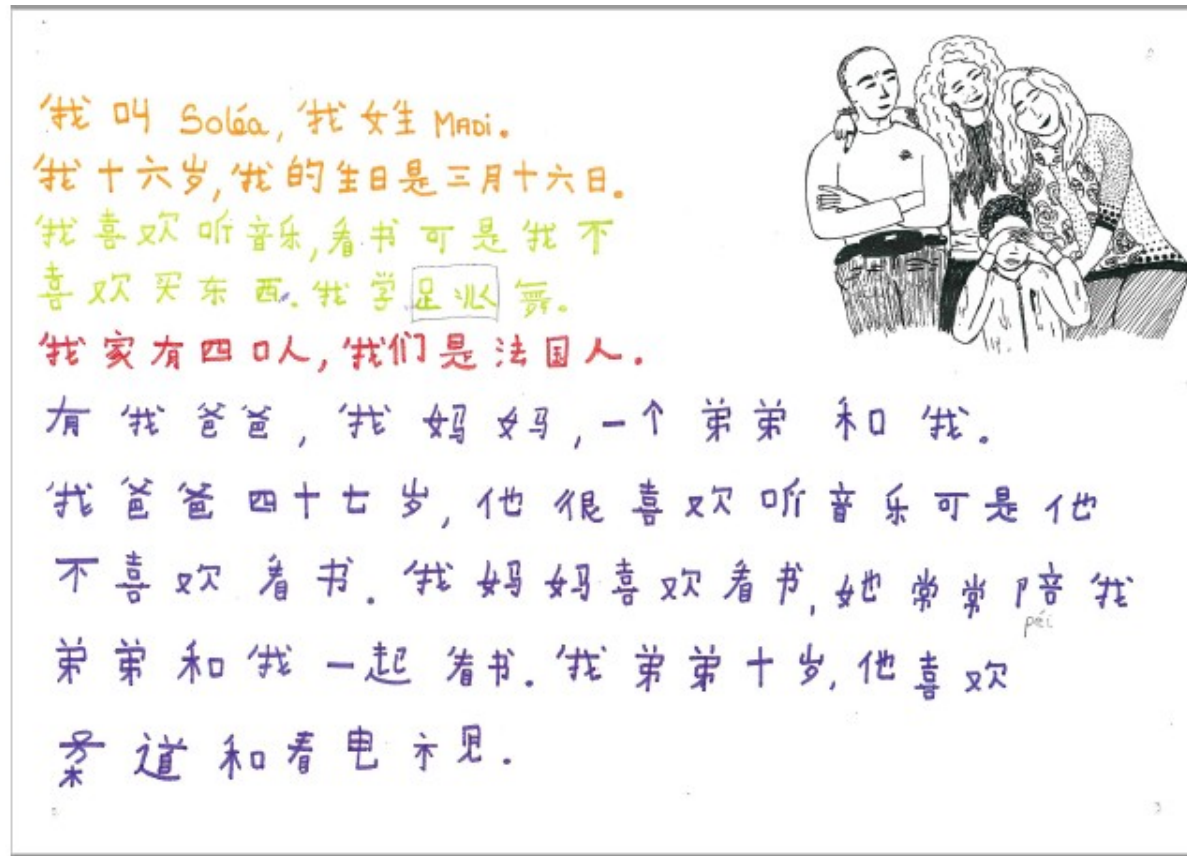 我叫 Soléa, 我姓 MADi。
我十六岁,我的生日是三月十六日。
我喜欢听音乐,看书可是我不
喜欢买东西. 我学跳舞。
我家有四口人, 我们是法国人.
有我爸爸, 我妈妈, 一个弟弟和我.
我爸爸四十七岁, 他很喜欢听音乐可是他
不喜欢看书. 我妈妈喜欢看书, 她常常陪我
péi
弟弟和我一起看书. 我弟弟十岁, 他喜欢
柔道和看电视.